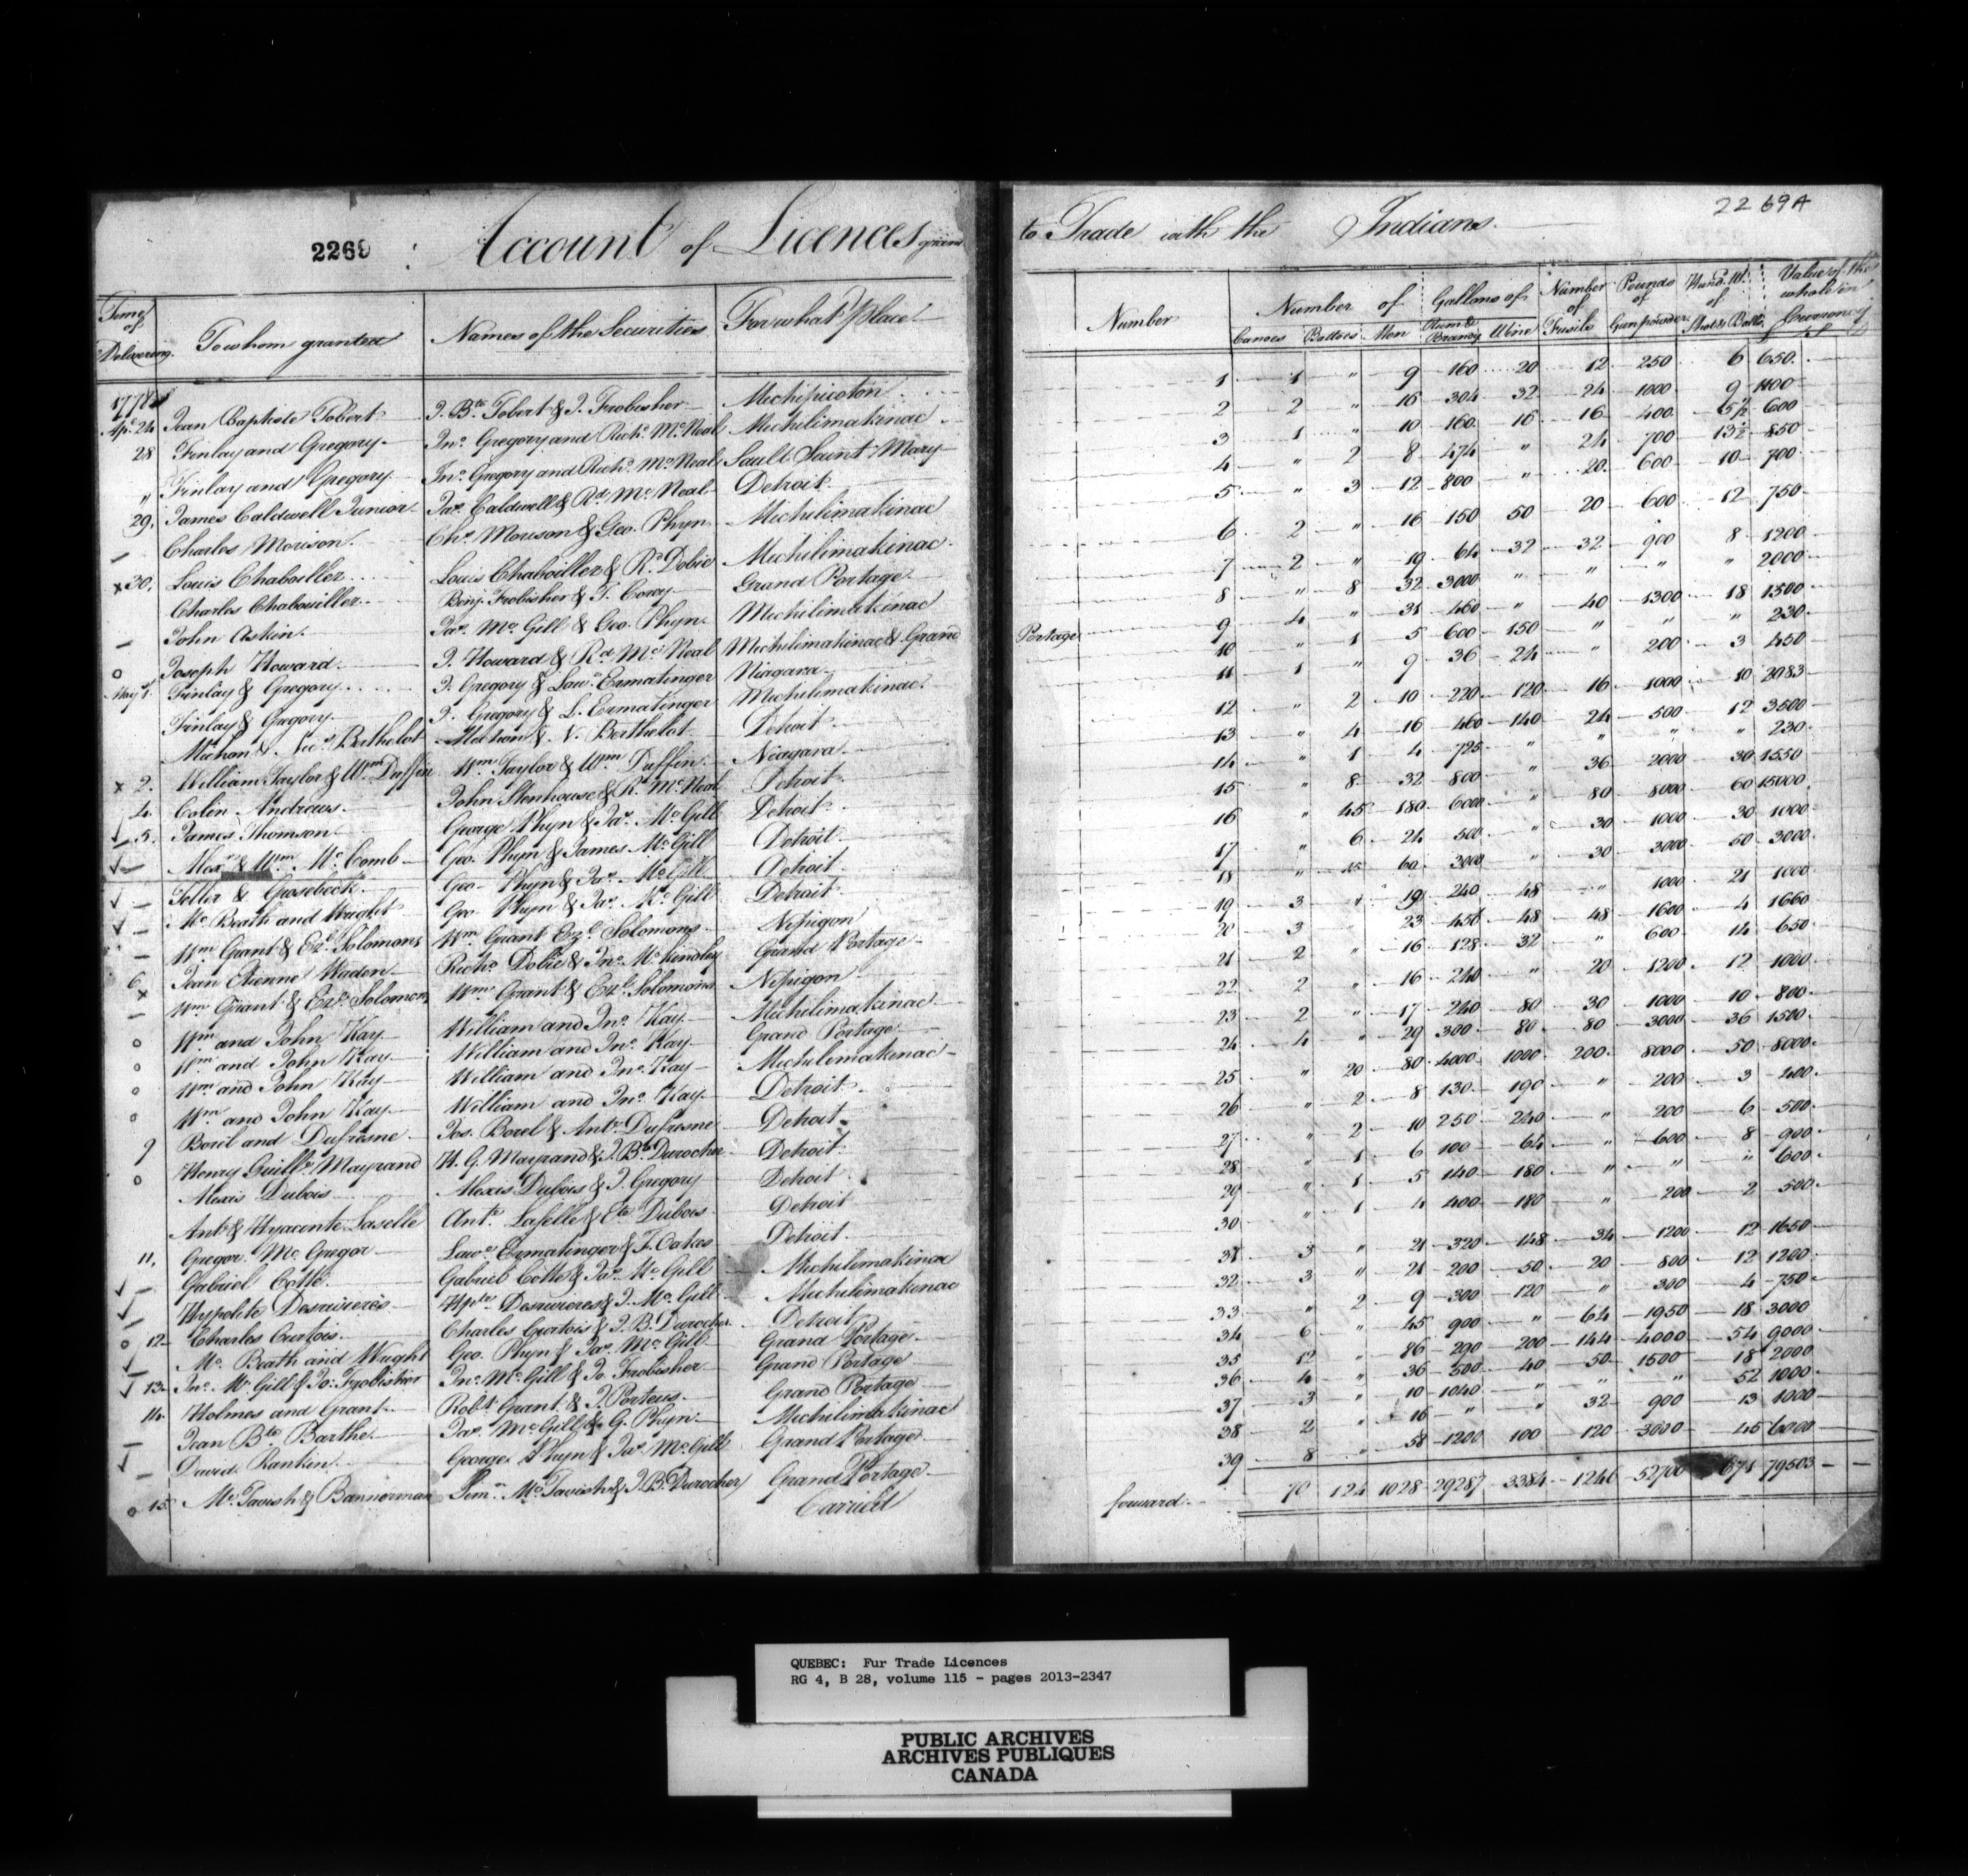 2269 : Account of Licences given
Time of Delivering. To whom granted Names of the Securities For what Place
1778
Ap.l 24 Jean Baptiste Jobert J. B.te Jobert & J. Frobisher Michipicoton
28 Finlay and Gregory Jn.o Gregory and Rich.d McNeal Michilimakinac
" Finlay and Gregory Jn.o Gregory and Rich.d McNeal Sault Saint Mary
29, James Caldwell Junior Ja.s Caldwell & R.d Mc Neal Detroit
– Charles Morison Ch.s Morison & Geo. Phyn Michilimakinac
x 30, Louis Chaboiller Louis Chaboiller & R.d Dobie Michilimakinac
Charles Chaboiller Benj. Frobisher & T. Corry Grand Portage
– John Askin Ja.s Mc Gill & Geo. Phyn Michilimakinac
o Joseph Howard J. Howard & R.d Mc Neal Michilimakinac & Grand
May 1st. Finlay & Gregory J. Gregory & Law.e Ermatinger Niagara
Finlay & Gregory J. Gregory & L. Ermatinger Michilimakinac
& Nic.s Berthelot & N. Berthelot Detroit
x 2. William Taylor & W.m Duffin W.m Taylor & W.m Duffin Niagara
4. Colin Andrews John Stenhouse & R. Mc Neal Detroit
✓ 5. James Thomson George Phyn & Ja.s Mc Gill Detroit
✓ – Alex.r & W.m Mc Comb Geo. Phyn & James Mc Gill Detroit
✓ – Teller & Groesbeck Geo. Phyn & Ja.s Mc Gill Detroit
✓ – Mc Beath and Wright Geo Phyn & Ja.s Mc Gill Detroit
– W.m Grant & Ez.l Solomons W.m Grant Ez.l Solomons Nipigon
6 Jean Etienne Waden Rich.d Dobie & Jn.o McKindley Grand Portage
x – W.m Grant & Ez.l Solomons W.m Grant & Ez.l Solomons Nipigon
o W.m and John Kay William and Jn.o Kay Michilimakinac
o W.m and John Kay William and Jn.o Kay Grand Portage
o W.m and John Kay William and Jn.o Kay Michilimakinac
o W.m and John Kay William and Jn.o Kay Detroit
9 Borel and Dufresne Jos. Borel & Ant.e Dufresne Detroit
o Henry Guill.e Mayrand H. G. Mayrand & J. B.te Durocher Detroit
Alexis Dubois Alexis Dubois & J. Gregory Detroit
Ant.e & Hyacinte Laselle Ant.e Laselle & E.te Dubois Detroit
11, Gregor Mc Gregor Law.e Ermatinger & F. Oakes Detroit
✓ – Gabriel Cotté Gabriel Cotté & Ja.s Mc Gill Michilimakinac
✓ – Hypolite Desrivieres Hyp.te Desrivieres & J. Mc Gill Michilimakinac
o 12 Charles Curtois Charles Curtois & J. B. Durocher Detroit
✓ Mc Beath and Wright Geo. Phyn & Ja.s Mc Gill Grand Portage
✓ 13 Jn.o Mc Gill & Jo: Frobisher Jn.o Mc Gill & Jo Frobisher Grand Portage
14. Holmes and Grant Rob.t Grant & J. Porteus Grand Portage
– Jean B.te Barthe Ja.s McGill & G. Phyn Michilimakinac
✓ – David Rankin George Phyn & Ja.s McGill Grand Portage
o 15 Mc Tavish & Bannerman Sim.n McTavish & J. B. Durocher Grand Portage
Carried
22 69A
to Trade with the Indians
Number Number of Canoes Battoes Men Gallons of Rum & Brandy Wine Number of Fusils Pounds of Gunpowder Hund. Wt. of Shot & Balls Value of the whole in Currency £
1 1 " 9 160 20 12 250 6 650
2 2 " 16 304 32 24 1000 9 1100
3 1 10 160 16 16 400 5½ 600
4 " 2 8 474 " 24 700 13½ 850
5 " 3 12 800 " 20 600 10 700
6 2 " 16 150 50 20 600 12 750
7 2 " 19 64 32 32 900 8 1200
8 " 8 32 3000 " " " " 2000
9 4 " 31 460 " 40 1300 18 1500
Portage 10 " 1 5 600 150 " " " 230
11 1 " 9 36 24 " 200 3 450
12 " 2 10 220 120 16 1000 10 2083
13 " 4 16 460 140 24 500 12 3500
14 " 1 4 725 " " " " 230
15 " 8 32 800 " 36 2000 30 1550
16 " 45 180 6000 " 80 8000 60 15000
17 " 6 24 500 " 30 1000 30 1000
18 " 15 60 3000 " 30 3000 50 3000
19 3 " 19 240 48 " 1000 21 1000
20 3 23 456 48 48 1600 4 1660
21 2 " 16 128 32 " 600 14 650
22 2 " 16 240 " 20 1200 12 1000
23 2 " 17 240 80 30 1000 10 800
24 4 " 29 300 80 80 3000 36 1500
25 " 20 80 4000 1000 200 8000 50 8000
26 " 2 8 130 190 " 200 3 400
27 " 2 10 250 240 " 200 6 500
28 " 1 6 100 64 " 600 8 900
29 " 1 5 140 180 " " " 600
30 " 1 4 400 180 " 200 2 500
31 3 " 21 320 148 34 1200 12 1650
32 3 " 21 200 50 20 800 12 1200
33 " 2 9 300 120 " 300 4 750
34 6 " 45 900 " 64 1950 18 3000
35 12 " 86 290 200 144 4000 54 9000
36 4 " 36 500 40 50 1500 18 2000
37 3 " 10 1040 " " " 52 1000
38 2 " 16 " " 32 900 13 1000
39 8 " 58 1200 100 120 3000 45 6000
forward 70 124 1028 29287 3384 1246 52700 671 79503
QUEBEC: Fur Trade Licences
RG 4, B 28, volume 115 - pages 2013-2347
PUBLIC ARCHIVES
ARCHIVES PUBLIQUES
CANADA